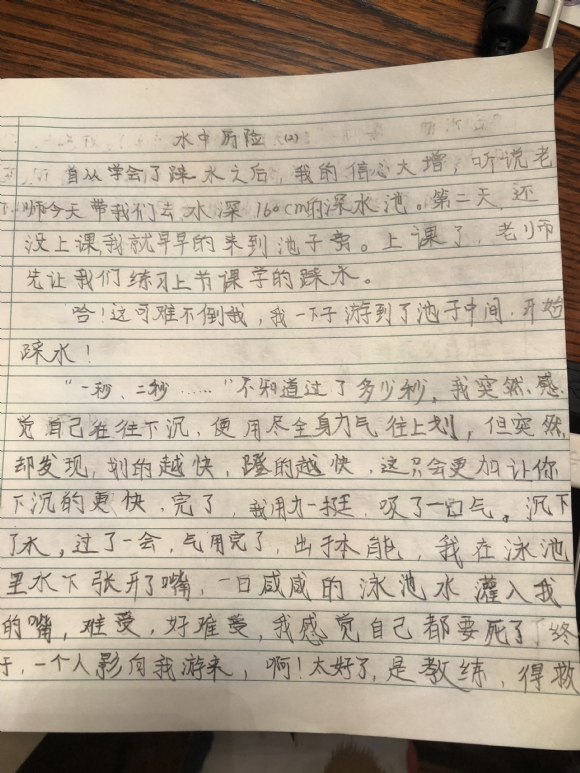 水中历险（2）
自从学会了踩水之后，我的信心大增，听说老
师今天带我们去水深160cm的深水池。第二天，还
没上课我就早早的来到池子旁。上课了，老师
先让我们练习上节课学的踩水。
哈！这可难不倒我，我一下子游到了池子中间，开始
踩水！
“一秒、二秒……”不知道过了多少秒，我突然感
觉自己在往下沉，便用尽全身力气往上划，但突然
却发现，划的越快，蹬的越快，这只会更加让你
下沉的更快，完了，我用力一挺，吸了一口气。沉下
了水，过了一会，气用完了，出于本能，我在泳池
里水下张开了嘴，一口咸咸的泳池水灌入我
的嘴，难受，好难受，我感觉自己都要死了，终
于，一个人影向我游来，啊！太好了，是教练，得救